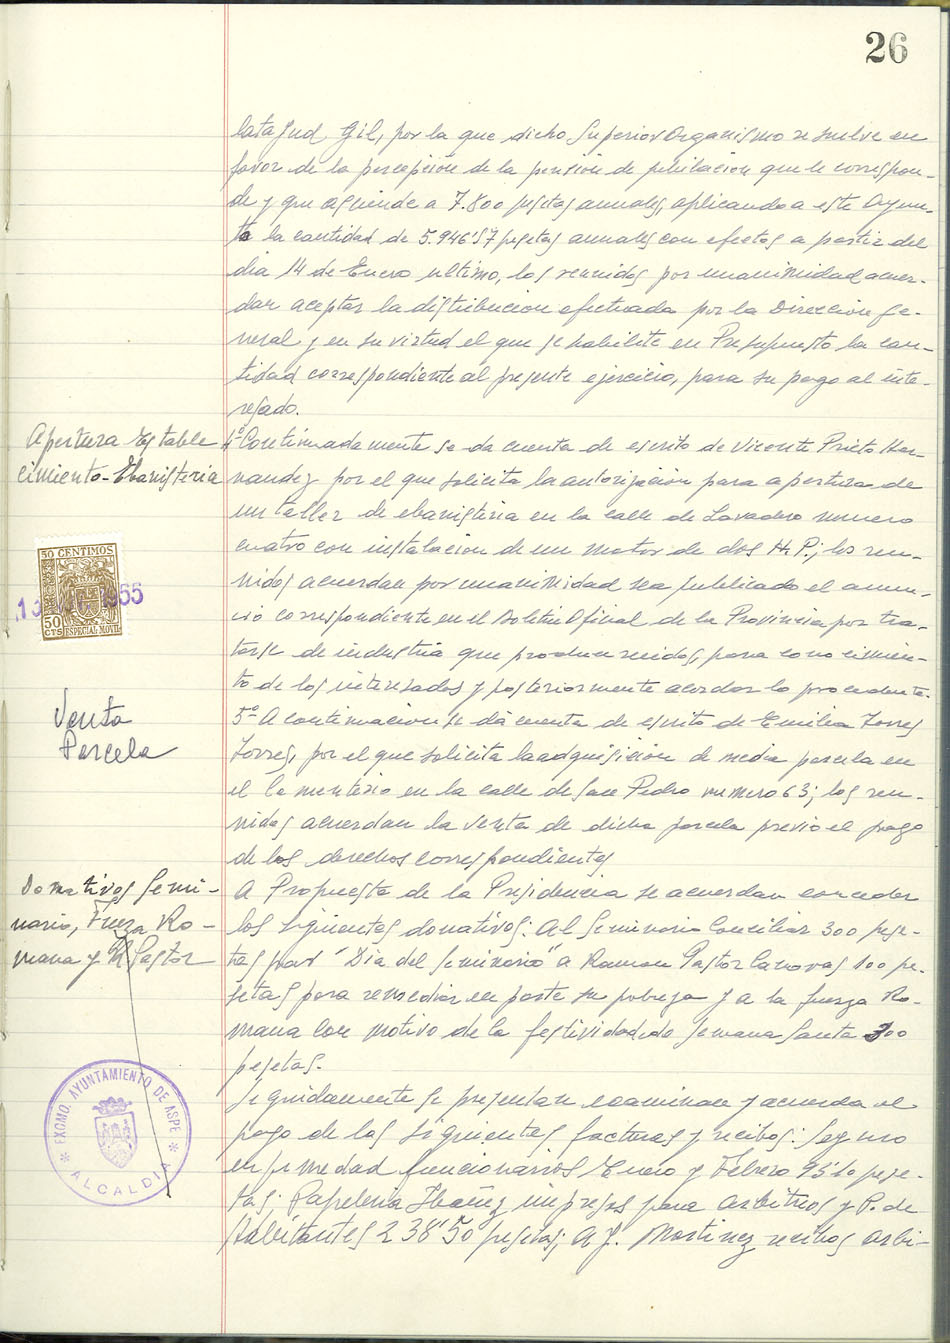 26
latajud Gil, por la que dicho Superior Organismo resuelve en
favor de la percepción de la pensión de jubilacion que le correspon-
de y que asciende a 7.800 pesetas anuales, aplicando a este Ayunta-
to la cantidad de 5.946'57 pesetas anuales con efectos a partir del
dia 14 de Enero ultimo, los reunidos por unanimidad acuer-
dan aceptar la distribucion efectuada por la Direccion Ge-
neral y en su virtud el que se habilite en Presupuesto la can-
tidad correspondiente al presente ejercicio, para su pago al inte-
resado.
Apertura Estable
cimiento-Ebanisteria
4º Continuadamente se da cuenta de escrito de Vicente Prieto Her-
nandez por el que solicita la autorizacion para apertura de
un taller de ebanisteria en la calle de Lavadero numero
cuatro con instalacion de un motor de dos H.P.; los reu-
nidos acuerdan por unanimidad sea publicado el anun-
cio correspondiente en el Boletin Oficial de la Provincia por tra-
tarse de industria que produce ruidos, para conocimien-
to de los interesados y posteriormente acordar lo procedente.
50 CENTIMOS
50
CTS ESPECIAL MOVIL
1955
Venta
Parcela
5º A continuacion se dá cuenta de escrito de Emilia Torres
Torres, por el que solicita la adquisicion de media parcela en
el Cementerio en la calle de San Pedro numero 63; los reu-
nidos acuerdan la venta de dicha parcela previo el pago
de los derechos correspondientes
Donativos Semi-
nario, Fuerza Ro-
mana y R. Pastor
A Propuesta de la Presidencia se acuerdan conceder
los siguientes donativos: Al Seminario Conciliar 300 pese-
tas para "Dia del Seminario" a Ramon Pastor Canovas 100 pe-
setas para remediar en parte su pobreza y a la fuerza Ro-
mana con motivo de la festividad de Semana Santa 300
pesetas.
Seguidamente se presentan examinan y acuerda el
pago de las siguientes facturas y recibos: Seguro
enfermedad funcionarios Enero y Febrero pese-
tas; Papeleria Ibañez impresos para arbitrios y P. de
Habitantes 238'50 pesetas; a J. Martinez recibos arbi-
EXCMO. AYUNTAMIENTO DE ASPE
ALCALDIA